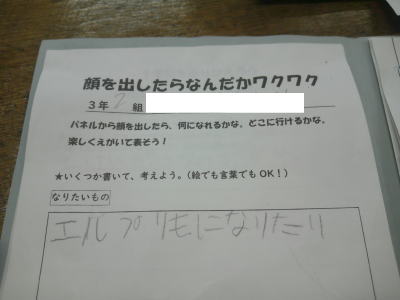 顔を出したらなんだかワクワク
3年 2 組
パネルから顔を出したら、何になれるかな。どこに行けるかな。
楽しくえがいて表そう！
★いくつか書いて、考えよう。（絵でも言葉でもOK！）
なりたいもの
エルプリモになりたい